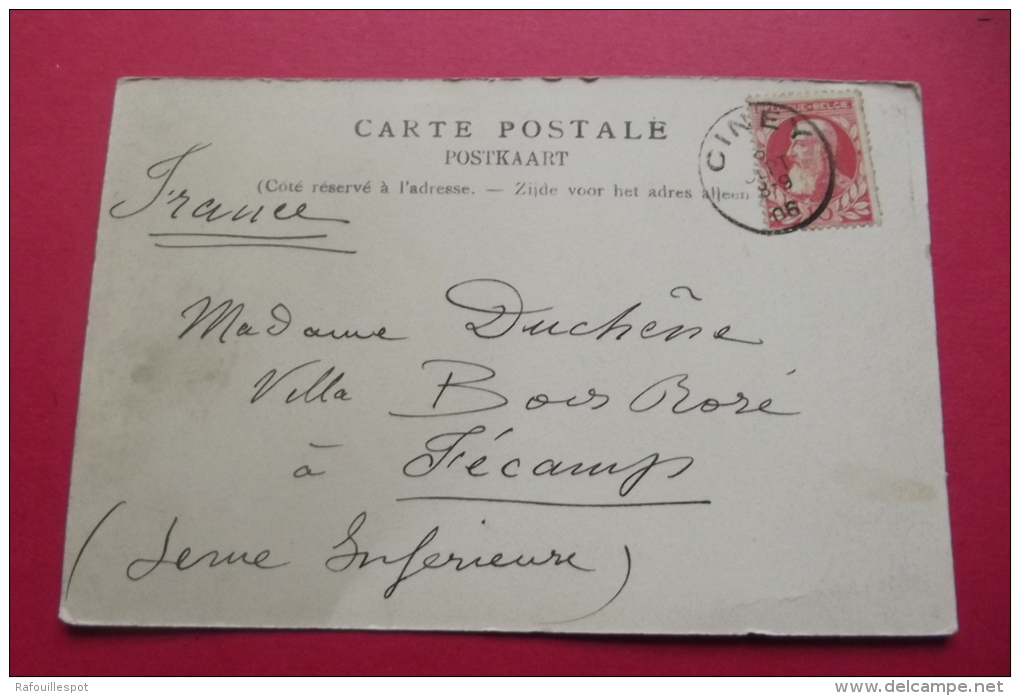 CARTE POSTALE
POSTKAART
(Côté réservé à l'adresse. — Zijde voor het adres alleen
BELGIQUE-BELGIE
CINEY
06
10
France
Madame Duchêne
Villa Bois Rosé
à Fécamp
(Seine Inferieure)
Rafouillespot
www.delcampe.net